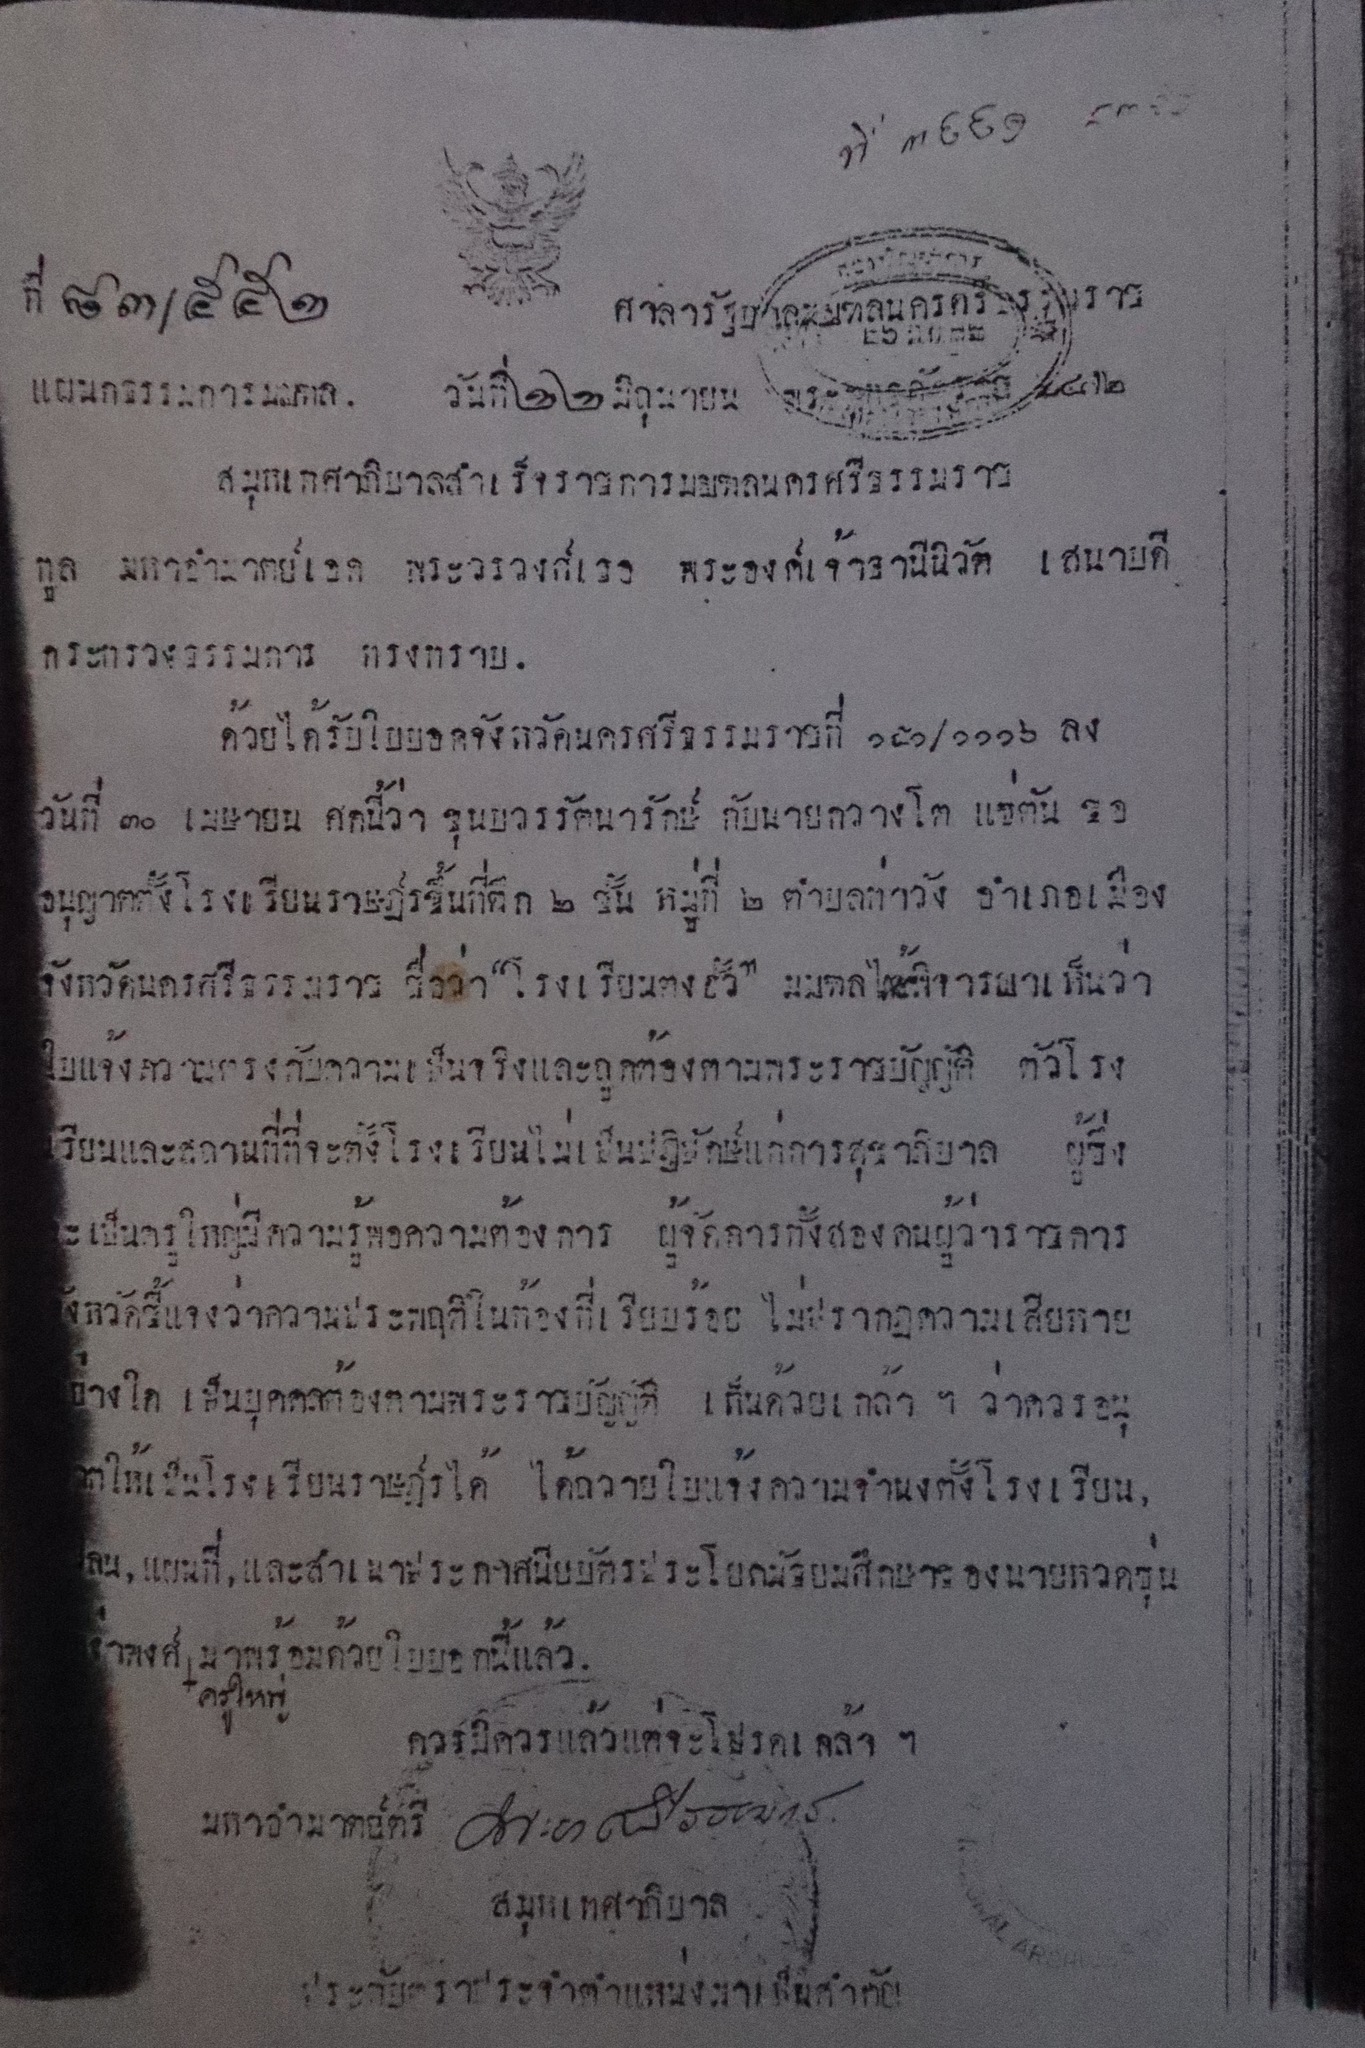 ที่ ๓๔๔๑
ที่ ๘๓/๕๕๒ ศาลารัฐบาลมณฑลนครศรีธรรมราช
แผนกธรรมการมณฑล. วันที่ ๒๒ มิถุนายน พระพุทธศักราช ๒๔๗๒
สมุหเทศาภิบาลสำเร็จราชการมณฑลนครศรีธรรมราช
ทูล มหาอำมาตย์เอก พระวรวงศ์เธอ พระองค์เจ้าธานีนิวัต เสนาบดี
กระทรวงธรรมการ ทรงทราบ.
ด้วยได้รับใบบอกจังหวัดนครศรีธรรมราชที่ ๑๕๑/๑๑๑๖ ลง
วันที่ ๓๐ เมษายน ศกนี้ว่า ขุนบวรรัตนารักษ์ กับนายกวางโต แซ่ตัน ขอ
อนุญาตตั้งโรงเรียนราษฎร์ขึ้นที่ตึก ๒ ชั้น หมู่ที่ ๒ ตำบลท่าวัง อำเภอเมือง
จังหวัดนครศรีธรรมราช ชื่อว่า "โรงเรียนตงฮั้ว" มณฑลได้พิจารณาเห็นว่า
ใบแจ้งความตรงกับความเป็นจริงและถูกต้องตามพระราชบัญญัติ ตัวโรง
เรียนและสถานที่ที่จะตั้งโรงเรียนไม่เป็นปฏิปักษ์แก่การสุขาภิบาล ผู้ซึ่ง
จะเป็นครูใหญ่มีความรู้พอความต้องการ ผู้จัดการทั้งสองคนผู้ว่าราชการ
จังหวัดชี้แจงว่าความประพฤติในท้องที่เรียบร้อย ไม่ปรากฏความเสียหาย
อย่างใด เป็นบุคคลต้องตามพระราชบัญญัติ เห็นด้วยเกล้า ฯ ว่าควรอนุ
ญาตให้เป็นโรงเรียนราษฎร์ได้ ได้ถวายใบแจ้งความจำนงตั้งโรงเรียน,
แปลน, แผนที่, และสำเนาประกาศนียบัตรประโยคมัธยมศึกษาของนายหวดซุ่น
พงศ์ มาพร้อมด้วยใบบอกนี้แล้ว.
ครูใหญ่
ควรมิควรแล้วแต่จะโปรดเกล้า ฯ
มหาอำมาตย์ตรี
สมุหเทศาภิบาล
ประทับตราประจำตำแหน่งมาเป็นสำคัญ